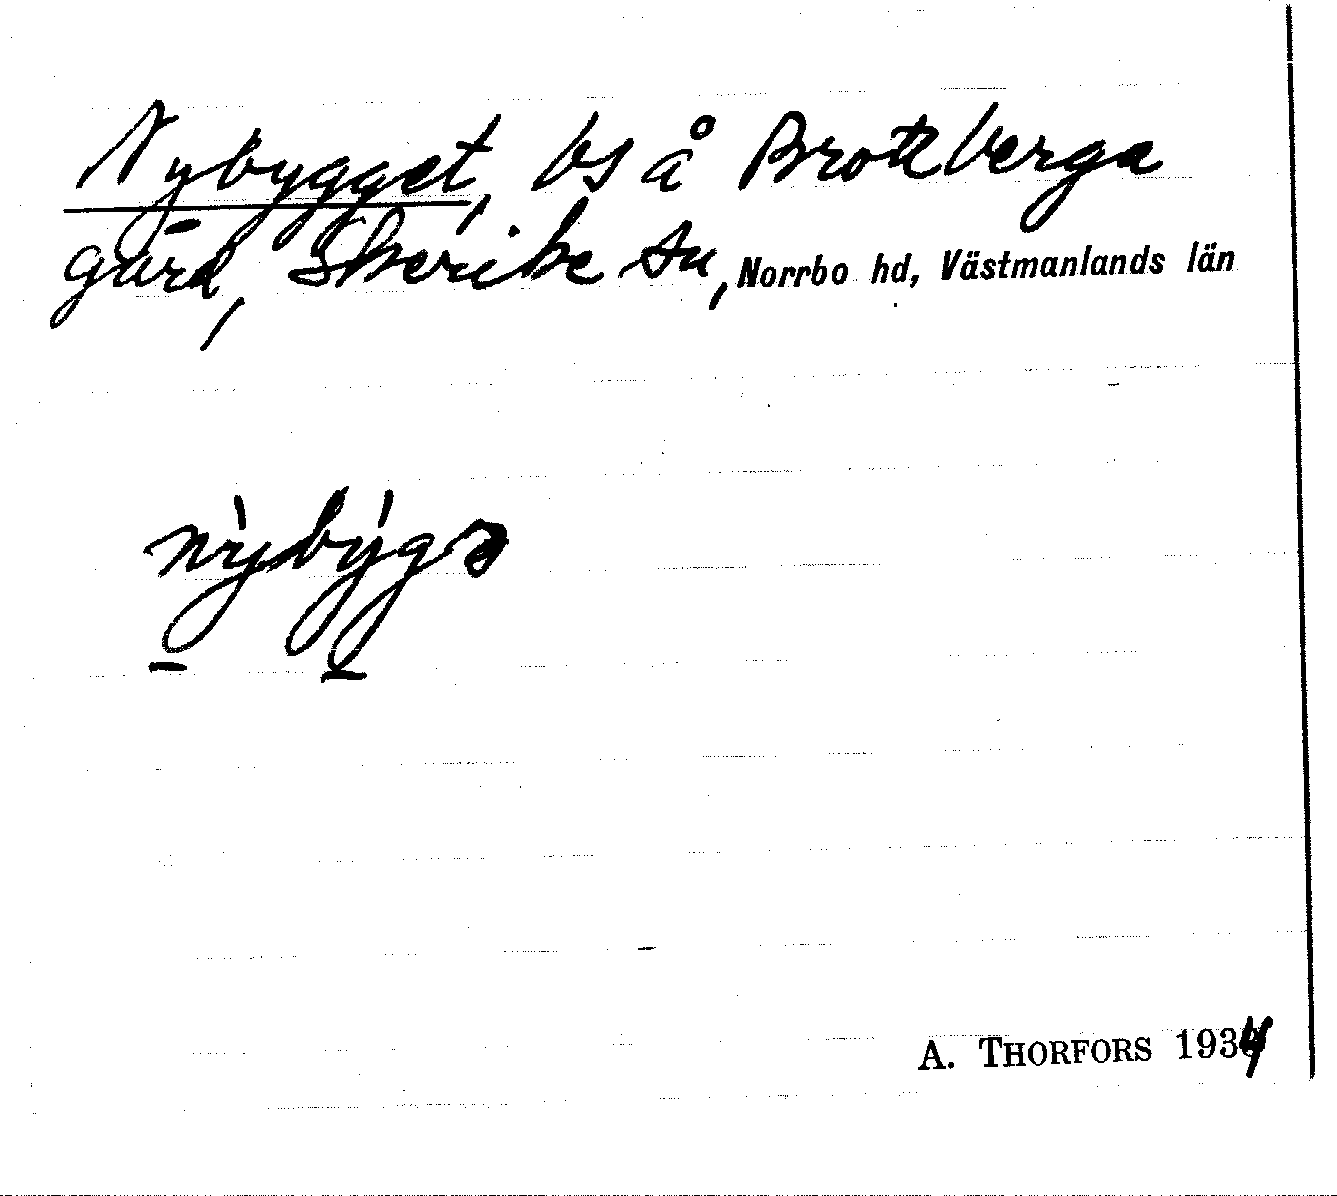 Nybygget, bs å Brottberga
gård, Skerike sn, Norrbo hd, Västmanlands län
nỳbýgə
A. THORFORS 1934